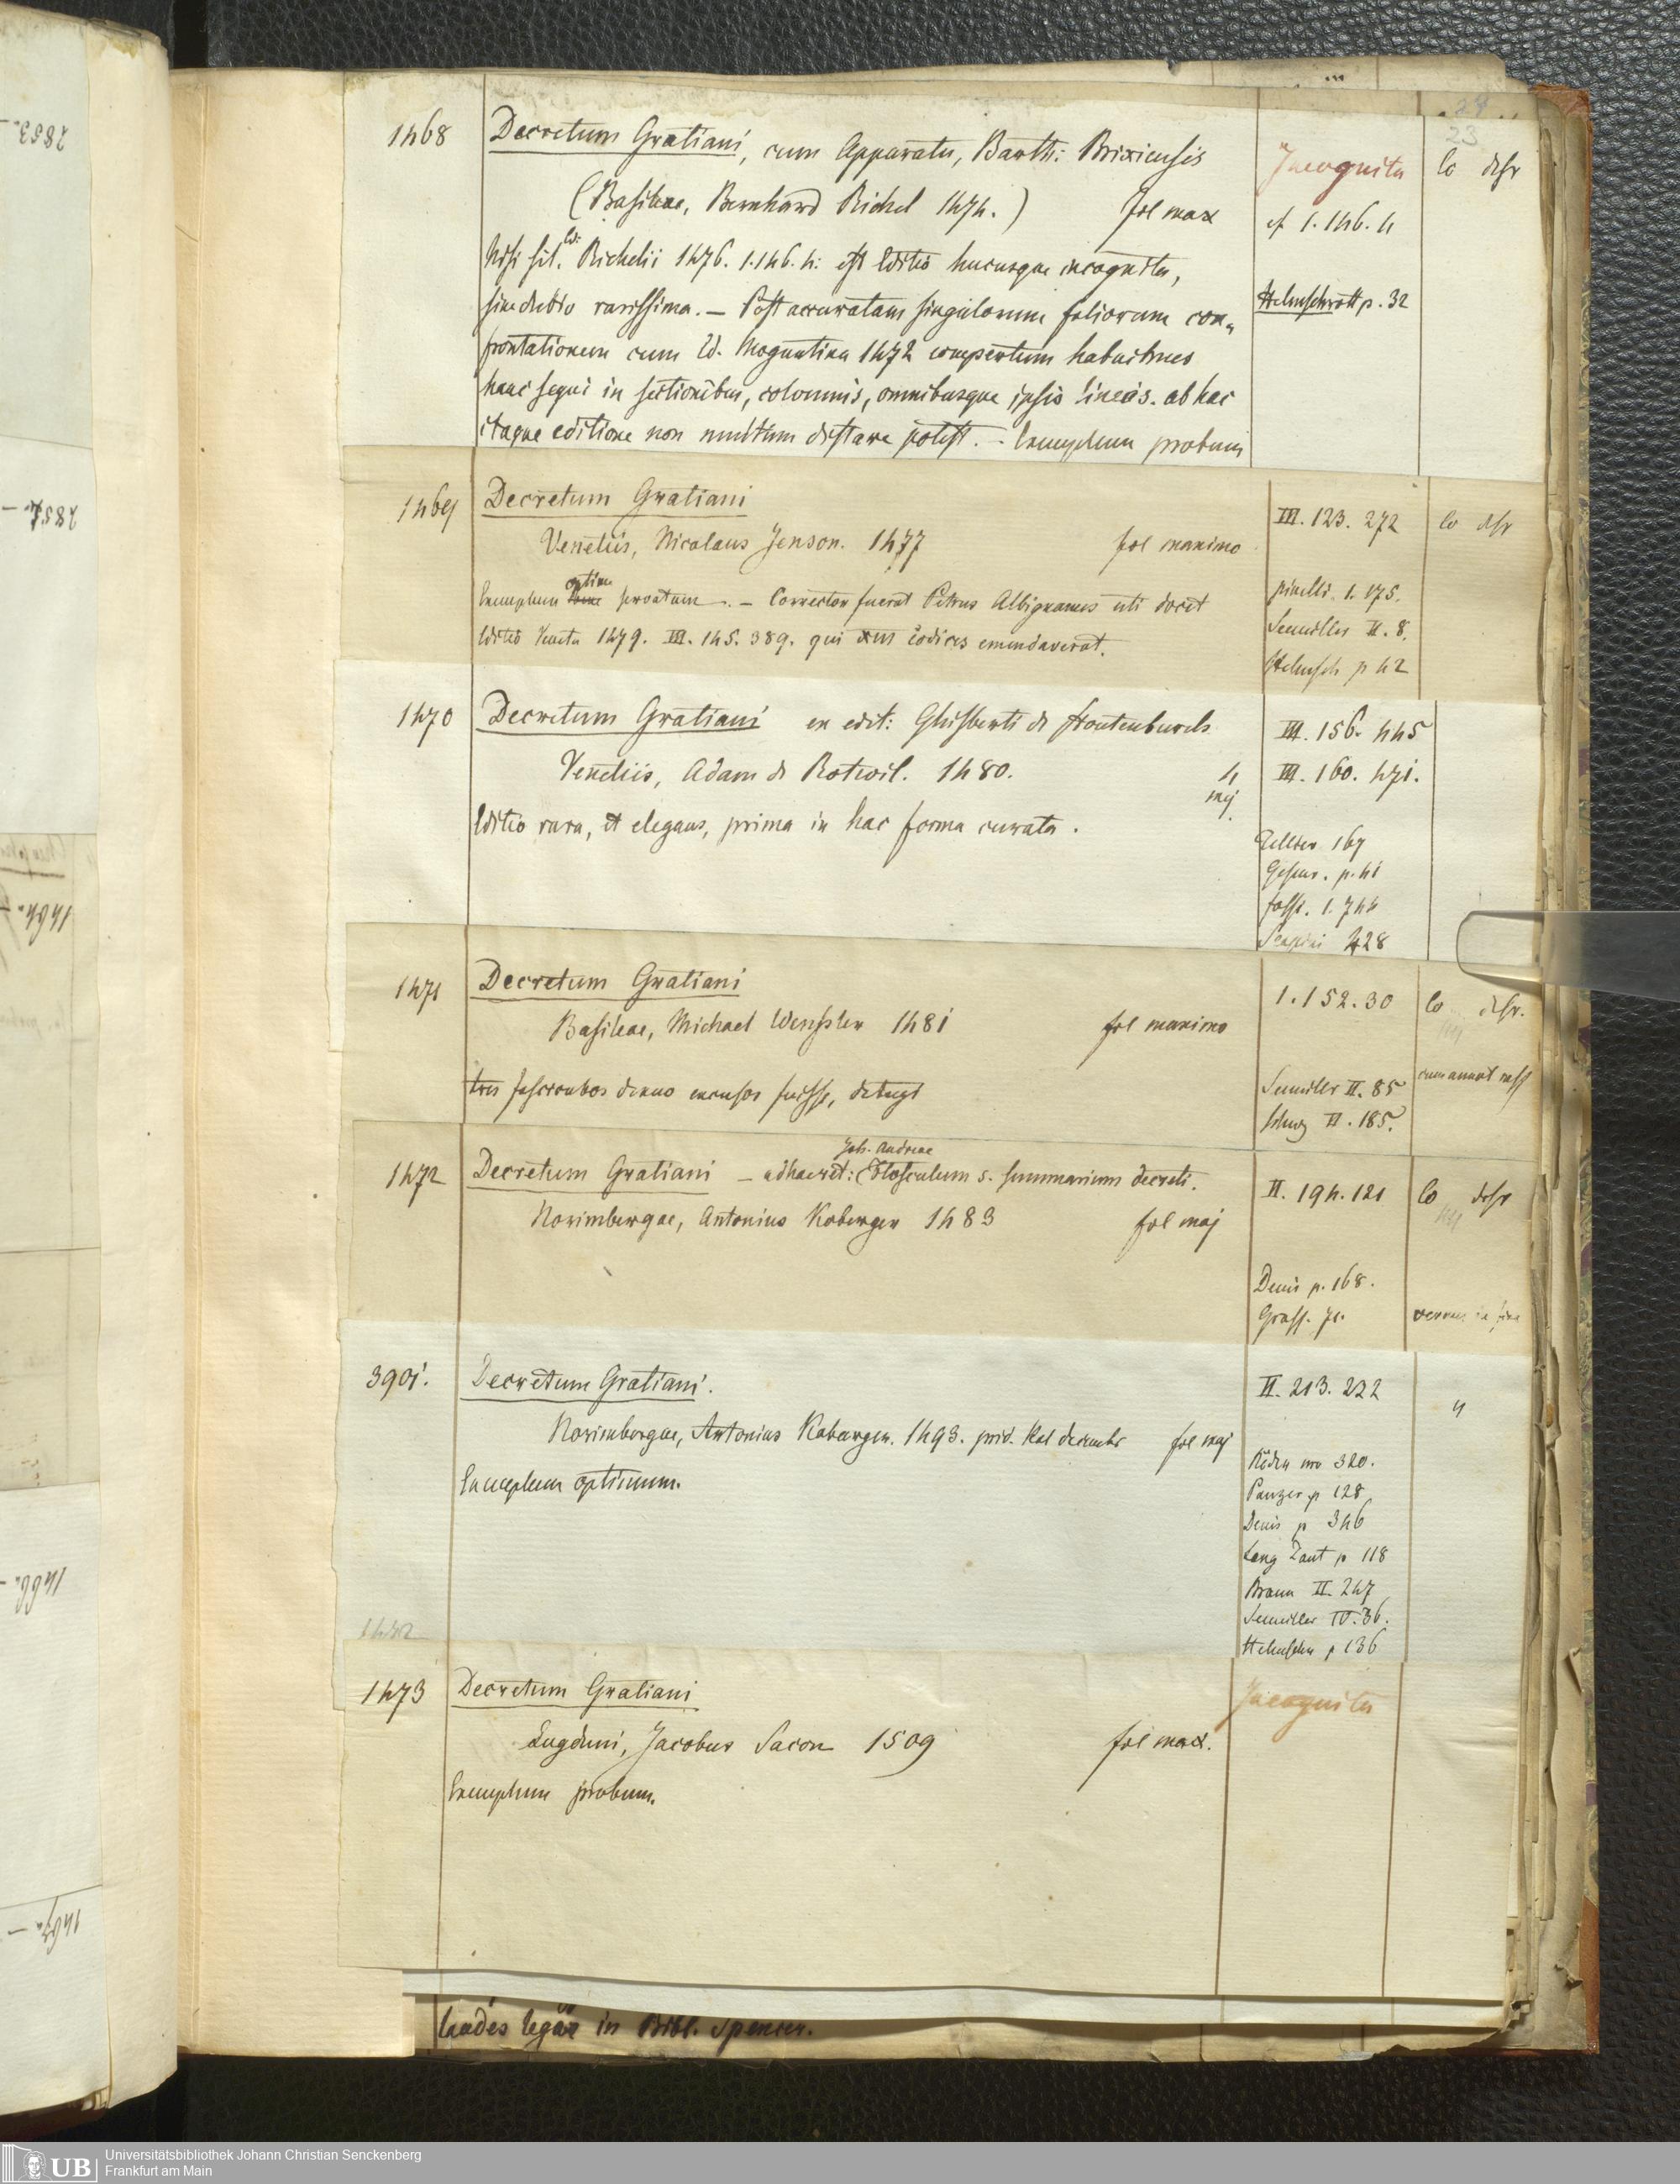 23
1468 Decretum Gratiani, cum Apparatu, Barth: Brixiensis Incognita Co desr
(Basileae, Bernhard Richel 1474.) fol max cf 1.146.4
Nisi sit. Ed: Richelii 1476. 1.146.4: est Editio hucusque incognita,
sine dubio rarissima. — Post accuratam singulorum foliorum con- Helmschrott p. 32
frontationem cum Ed. Moguntina 1472 compertum habuimus
hanc sequi in sectionibus, columnis, omnibusque ipsis lineis. ab hac
itaque editione non multum distare potest. - Exemplum probum
1469 Decretum Gratiani III. 123. 272 Co desr
Venetiis, Nicolaus Jenson. 1477 fol maximo
Exemplum bene optime servatum. — Corrector fuerat Petrus Albignanus uti docet pinelli. 1. 175.
Editio Veneta 1479. III. 145. 389. qui codices emendaverat. Seemiller II. 8.
Helmsch p 42
1470 Decretum Gratiani ex edit: Ghisberti de Stoutenburch III. 156. 445
Venetiis, Adam de Rotwil. 1480. 4 maj III. 160. 471.
Editio rara, et elegans, prima in hac forma curata.
Zeltner 167
Gesner. p. 41
foss. 1. 744
428
1471 Decretum Gratiani 1.152.30 Co desr.
Basileae, Michael Wenssler 1481 fol maximo
tres denuo excusos fuisse, detegt Seemiller II. 85
II. 185.
1472 Decretum Gratiani — adhaeret: Joh. Andreae Flosculum s. summarium decreti. II. 194. 121 Co desr
Norimbergae, Antonius Koberger 1483 fol maj
Denis p. 168.
Grass. 71.
3901. Decretum Gratiani. II. 213. 222 "
Norimbergae, Antonius Koberger. 1493. prid. Kal decembr fol maj
Exemplum optimum. Röder nro 320.
Panzer p 128
Denis p 346
Lang Zaut p 118
Braun II. 247
Seemiller IV. 36.
Helmschr p 136
1473 Decretum Gratiani Incognita
Lugduni, Jacobus Sacon 1509 fol max.
Exemplum probum.
in Bibl. Spencer.
2853.
2854 —
1464. —
1466. —
1467. —
UB
Universitätsbibliothek Johann Christian Senckenberg
Frankfurt am Main